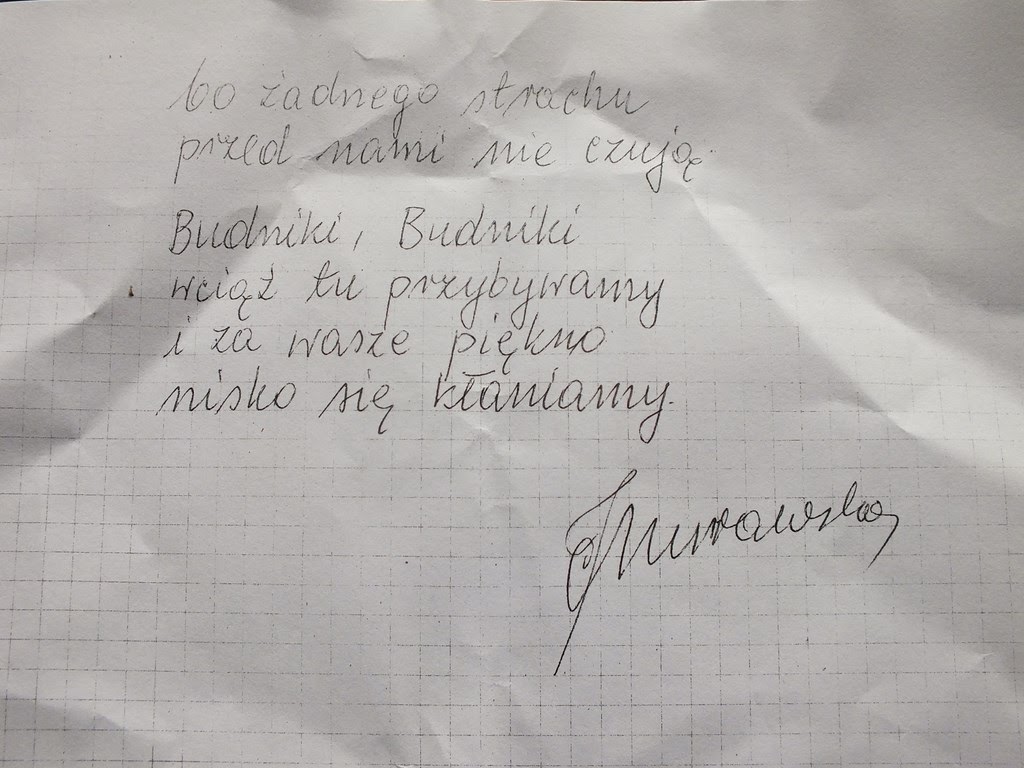 bo żadnego strachu
przed nami nie czują.
Budniki, Budniki
wciąż tu przybywamy
i za wasze piękno
nisko się kłaniamy.
Murawska